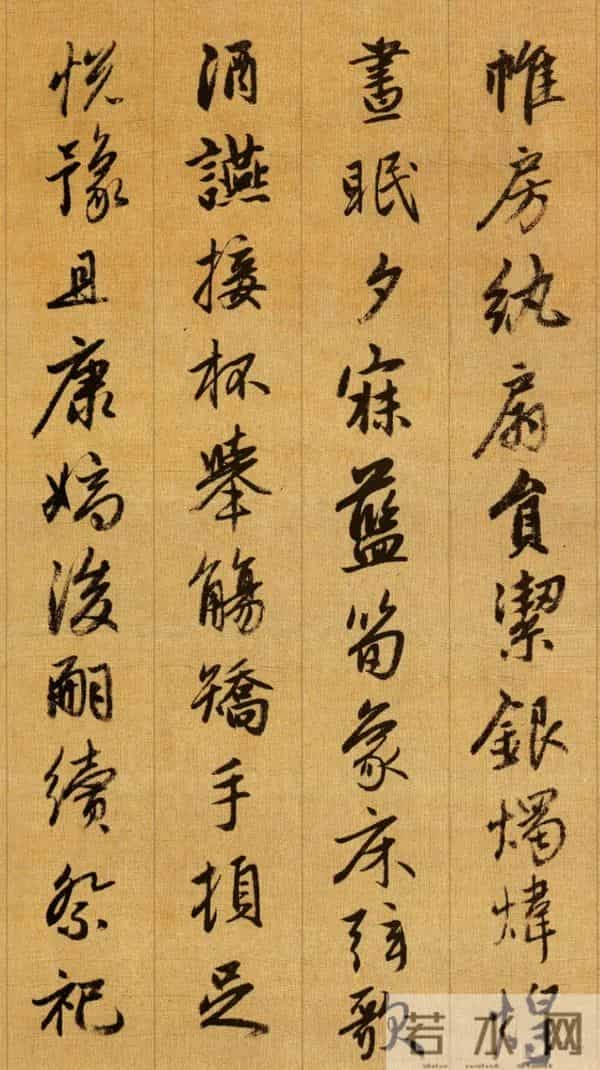 帷房紈扇員潔銀燭煒煌
晝眠夕寐藍筍象床弦歌
酒讌接杯舉觴矯手頓足
悅豫且康嫡後嗣續祭祀
若水网